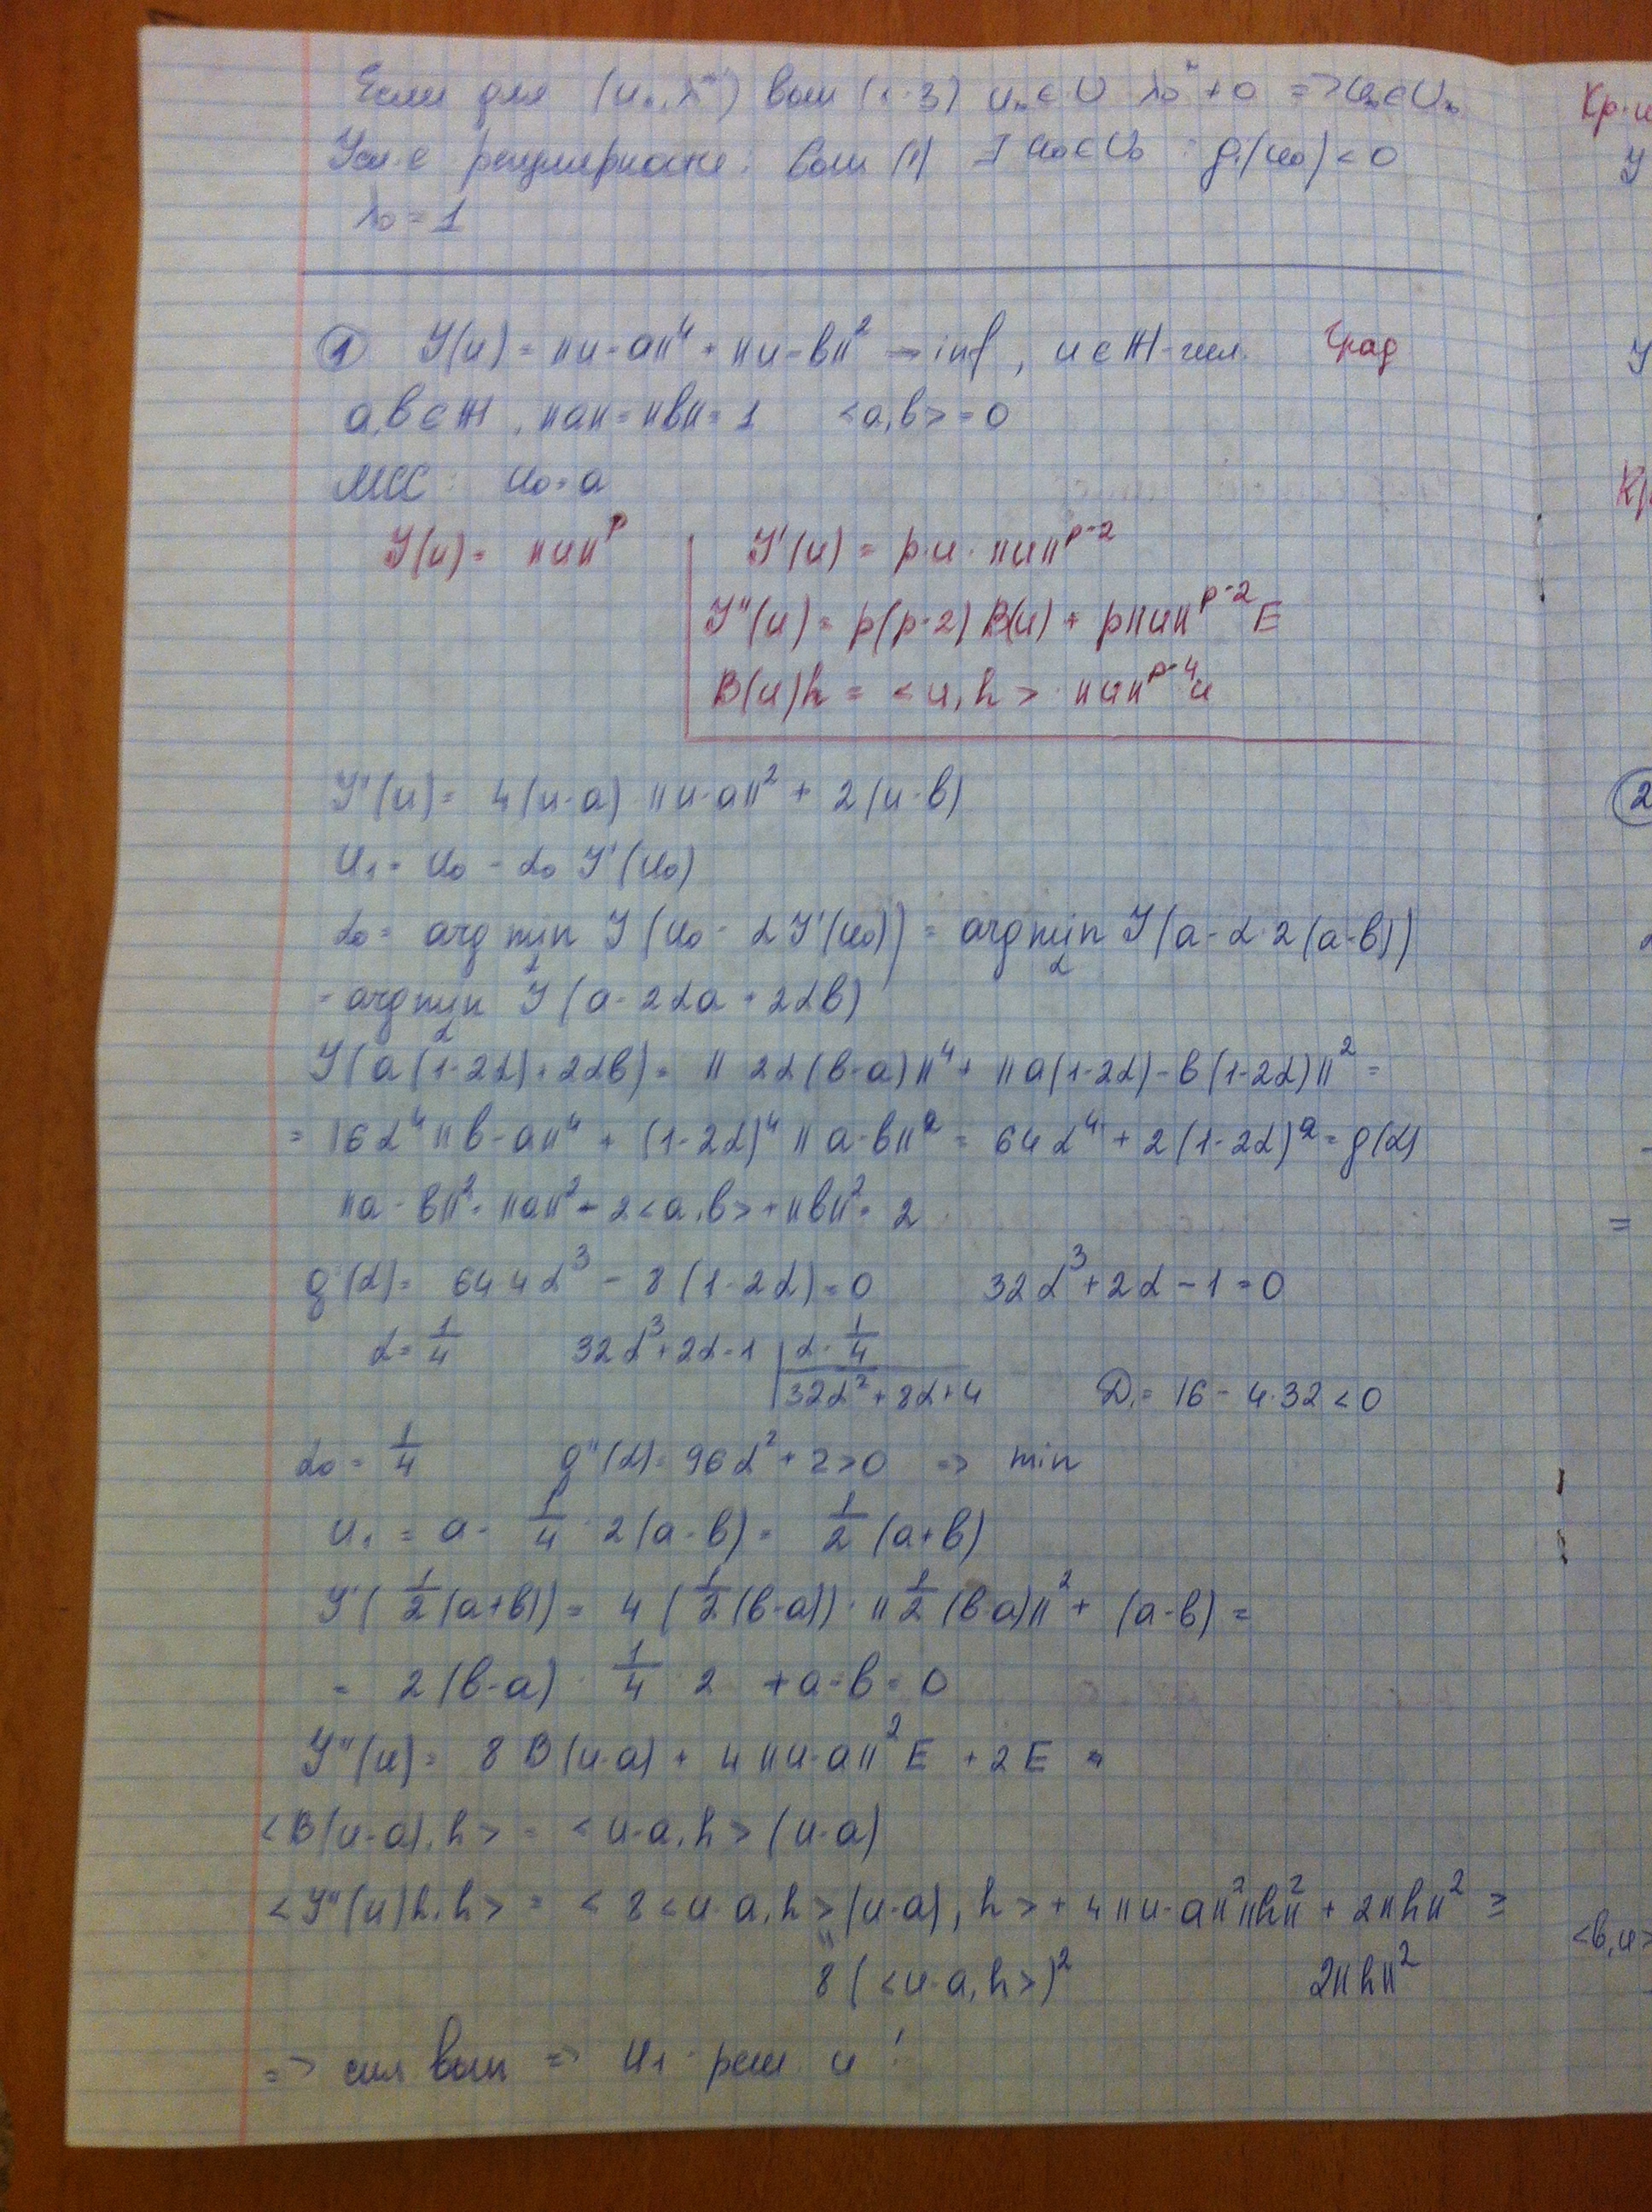 Если для (u*, λ*) вып (1-3) u* ∈ U λ0* ≠ 0 => u* ∈ U*
Усл-е регулярности: вып (1) ∃ u0 ∈ U0 : gi(u0) < 0
λ0 = 1
① J(u) = ||u-a||^4 + ||u-b||^2 → inf, u ∈ H-гил. Град
a, b ∈ H, ||a|| = ||b|| = 1 <a,b> = 0
МСС: u0 = a
J(u) = ||u||^p J'(u) = p·u·||u||^{p-2}
J''(u) = p(p-2) B(u) + p||u||^{p-2} E
B(u)h = <u,h> ||u||^{p-4} u
J'(u) = 4(u-a) ||u-a||^2 + 2(u-b)
u1 = u0 - α0 J'(u0)
α0 = argmin_α J(u0 - αJ'(u0)) = argmin_α J(a-α·2(a-b))
= argmin_α J(a-2αa+2αb)
J(a(1-2α)+2αb) = ||2α(b-a)||^4 + ||a(1-2α)-b(1-2α)||^2 =
= 16α^4||b-a||^4 + (1-2α)^4||a-b||^2 = 64α^4 + 2(1-2α)^2 = g(α)
||a-b||^2 = ||a||^2 - 2<a,b> + ||b||^2 = 2
g'(α) = 64·4α^3 - 8(1-2α) = 0 32α^3+2α-1=0
α = 1/4 32α^3+2α-1 | α-1/4
32α^2+8α+4 D1 = 16-4·32<0
α0 = 1/4 g''(α) = 96α^2+2>0 => min
u1 = a - 1/4·2(a-b) = 1/2(a+b)
J'(1/2(a+b)) = 4(1/2(b-a))·||1/2(b-a)||^2 + (a-b) =
= 2(b-a)·1/4·2 + a-b = 0
J''(u) = 8B(u-a) + 4||u-a||^2 E + 2E =
<B(u-a),h> = <u-a,h>(u-a)
<J''(u)h,h> = <8<u-a,h>(u-a),h> + 4||u-a||^2||h||^2 + 2||h||^2 ≥
8(<u-a,h>)^2 2||h||^2
=> сил вып => u1 - реш. и !
Кр
②
<b,u>